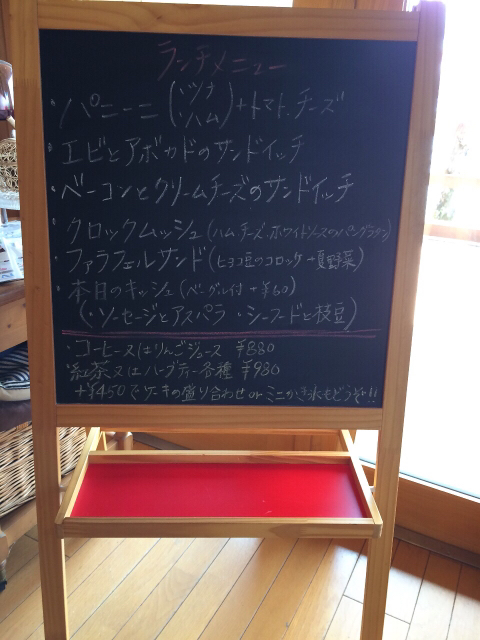 ランチメニュー
・パニーニ(ツナ ハム)+トマト、チーズ
・エビとアボカドのサンドイッチ
・ベーコンとクリームチーズのサンドイッチ
・クロックムッシュ(ハム チーズ・ホワイトソースのパングラタン)
・ファラフェルサンド(ヒヨコ豆のコロッケ+夏野菜)
・本日のキッシュ(ベーグル付 +¥60)
(・ソーセージとアスパラ ・シーフードと枝豆)
・コーヒー又はりんごジュース ¥880
・紅茶又はハーブティー各種 ¥980
+¥450でケーキの盛り合わせorミニかき氷もどうぞ!!